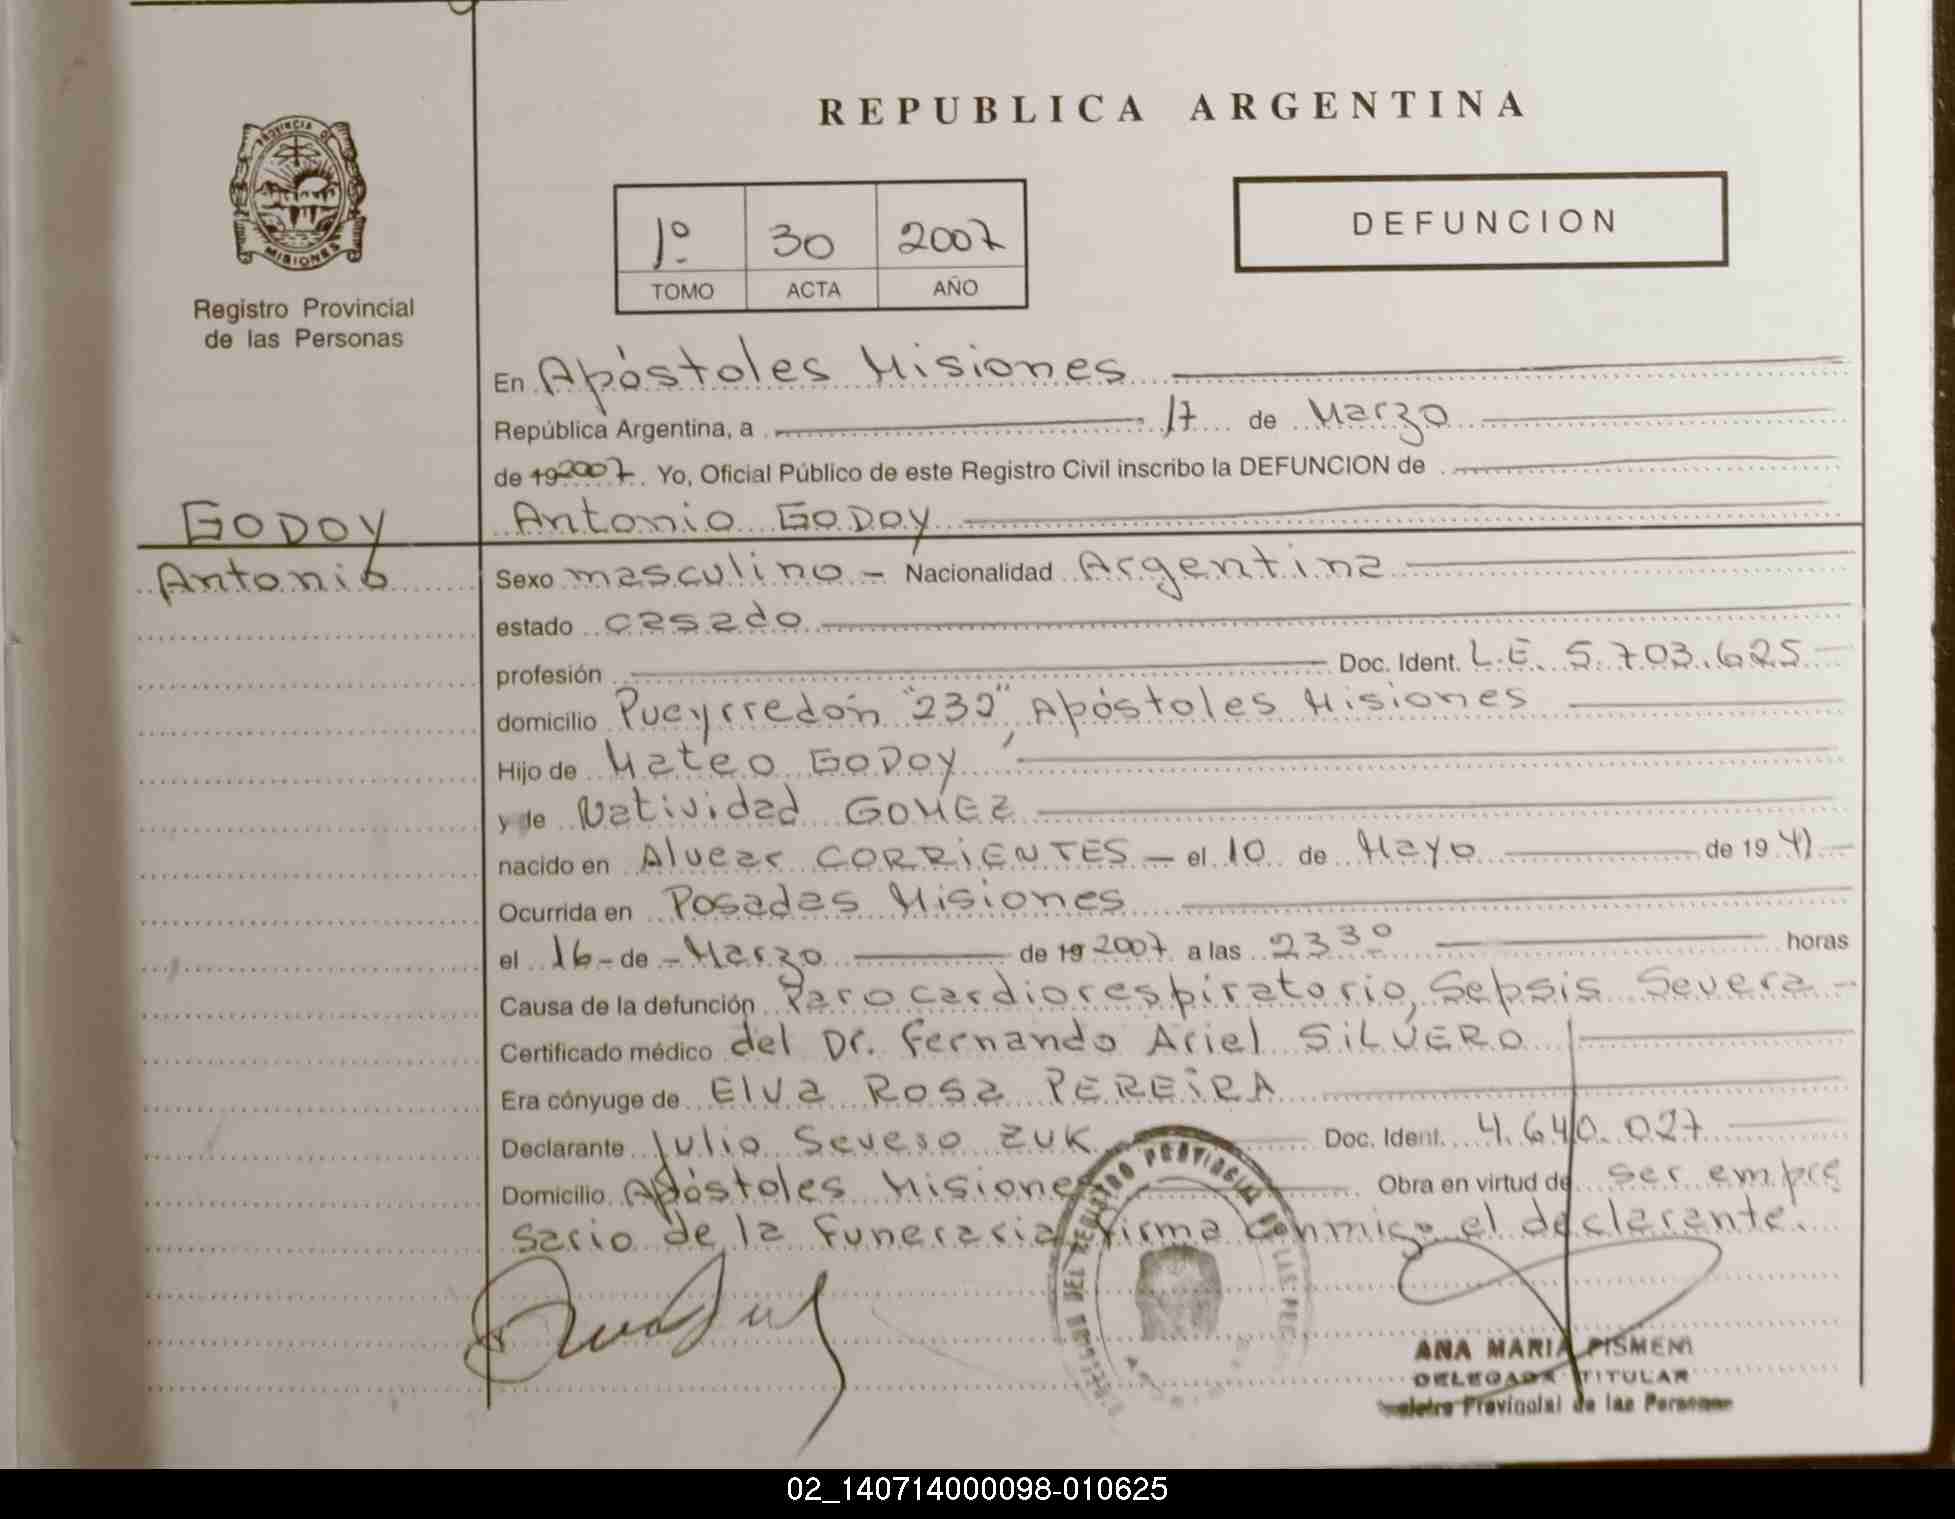 REPUBLICA ARGENTINA
PROVINCIA DE
MISIONES
Registro Provincial
de las Personas
1º 30 2007
TOMO ACTA AÑO
DEFUNCION
En Apóstoles Misiones
República Argentina, a 17 de Marzo
de 19 2007. Yo, Oficial Público de este Registro Civil inscribo la DEFUNCION de
GODOY
Antonio
Antonio GODOY
Sexo masculino - Nacionalidad Argentina
estado casado
profesión Doc. Ident. L.E. 5.703.625
domicilio Pueyrredón "232", Apóstoles Misiones
Hijo de Mateo GODOY
y de Natividad GOMEZ
nacido en Alvear CORRIENTES - el 10 de Mayo de 19 41
Ocurrida en Posadas Misiones
el 16 - de - Marzo de 19 2007 a las 23 30 horas
Causa de la defunción Paro cardiorespiratorio, Sepsis Severa -
Certificado médico del Dr. Fernando Ariel SILVERO
Era cónyuge de Elva Rosa PEREIRA
Declarante Julio Severo ZUK Doc. Ident. 4.640.027
Domicilio Apóstoles Misiones Obra en virtud de ser empre
sario de la Funeraria firma conmigo el declarante.
REGISTRO PROVINCIAL DE LAS PER
ANA MARIA PISMENI
DELEGADA TITULAR
Provincial de las Personas
02_140714000098-010625